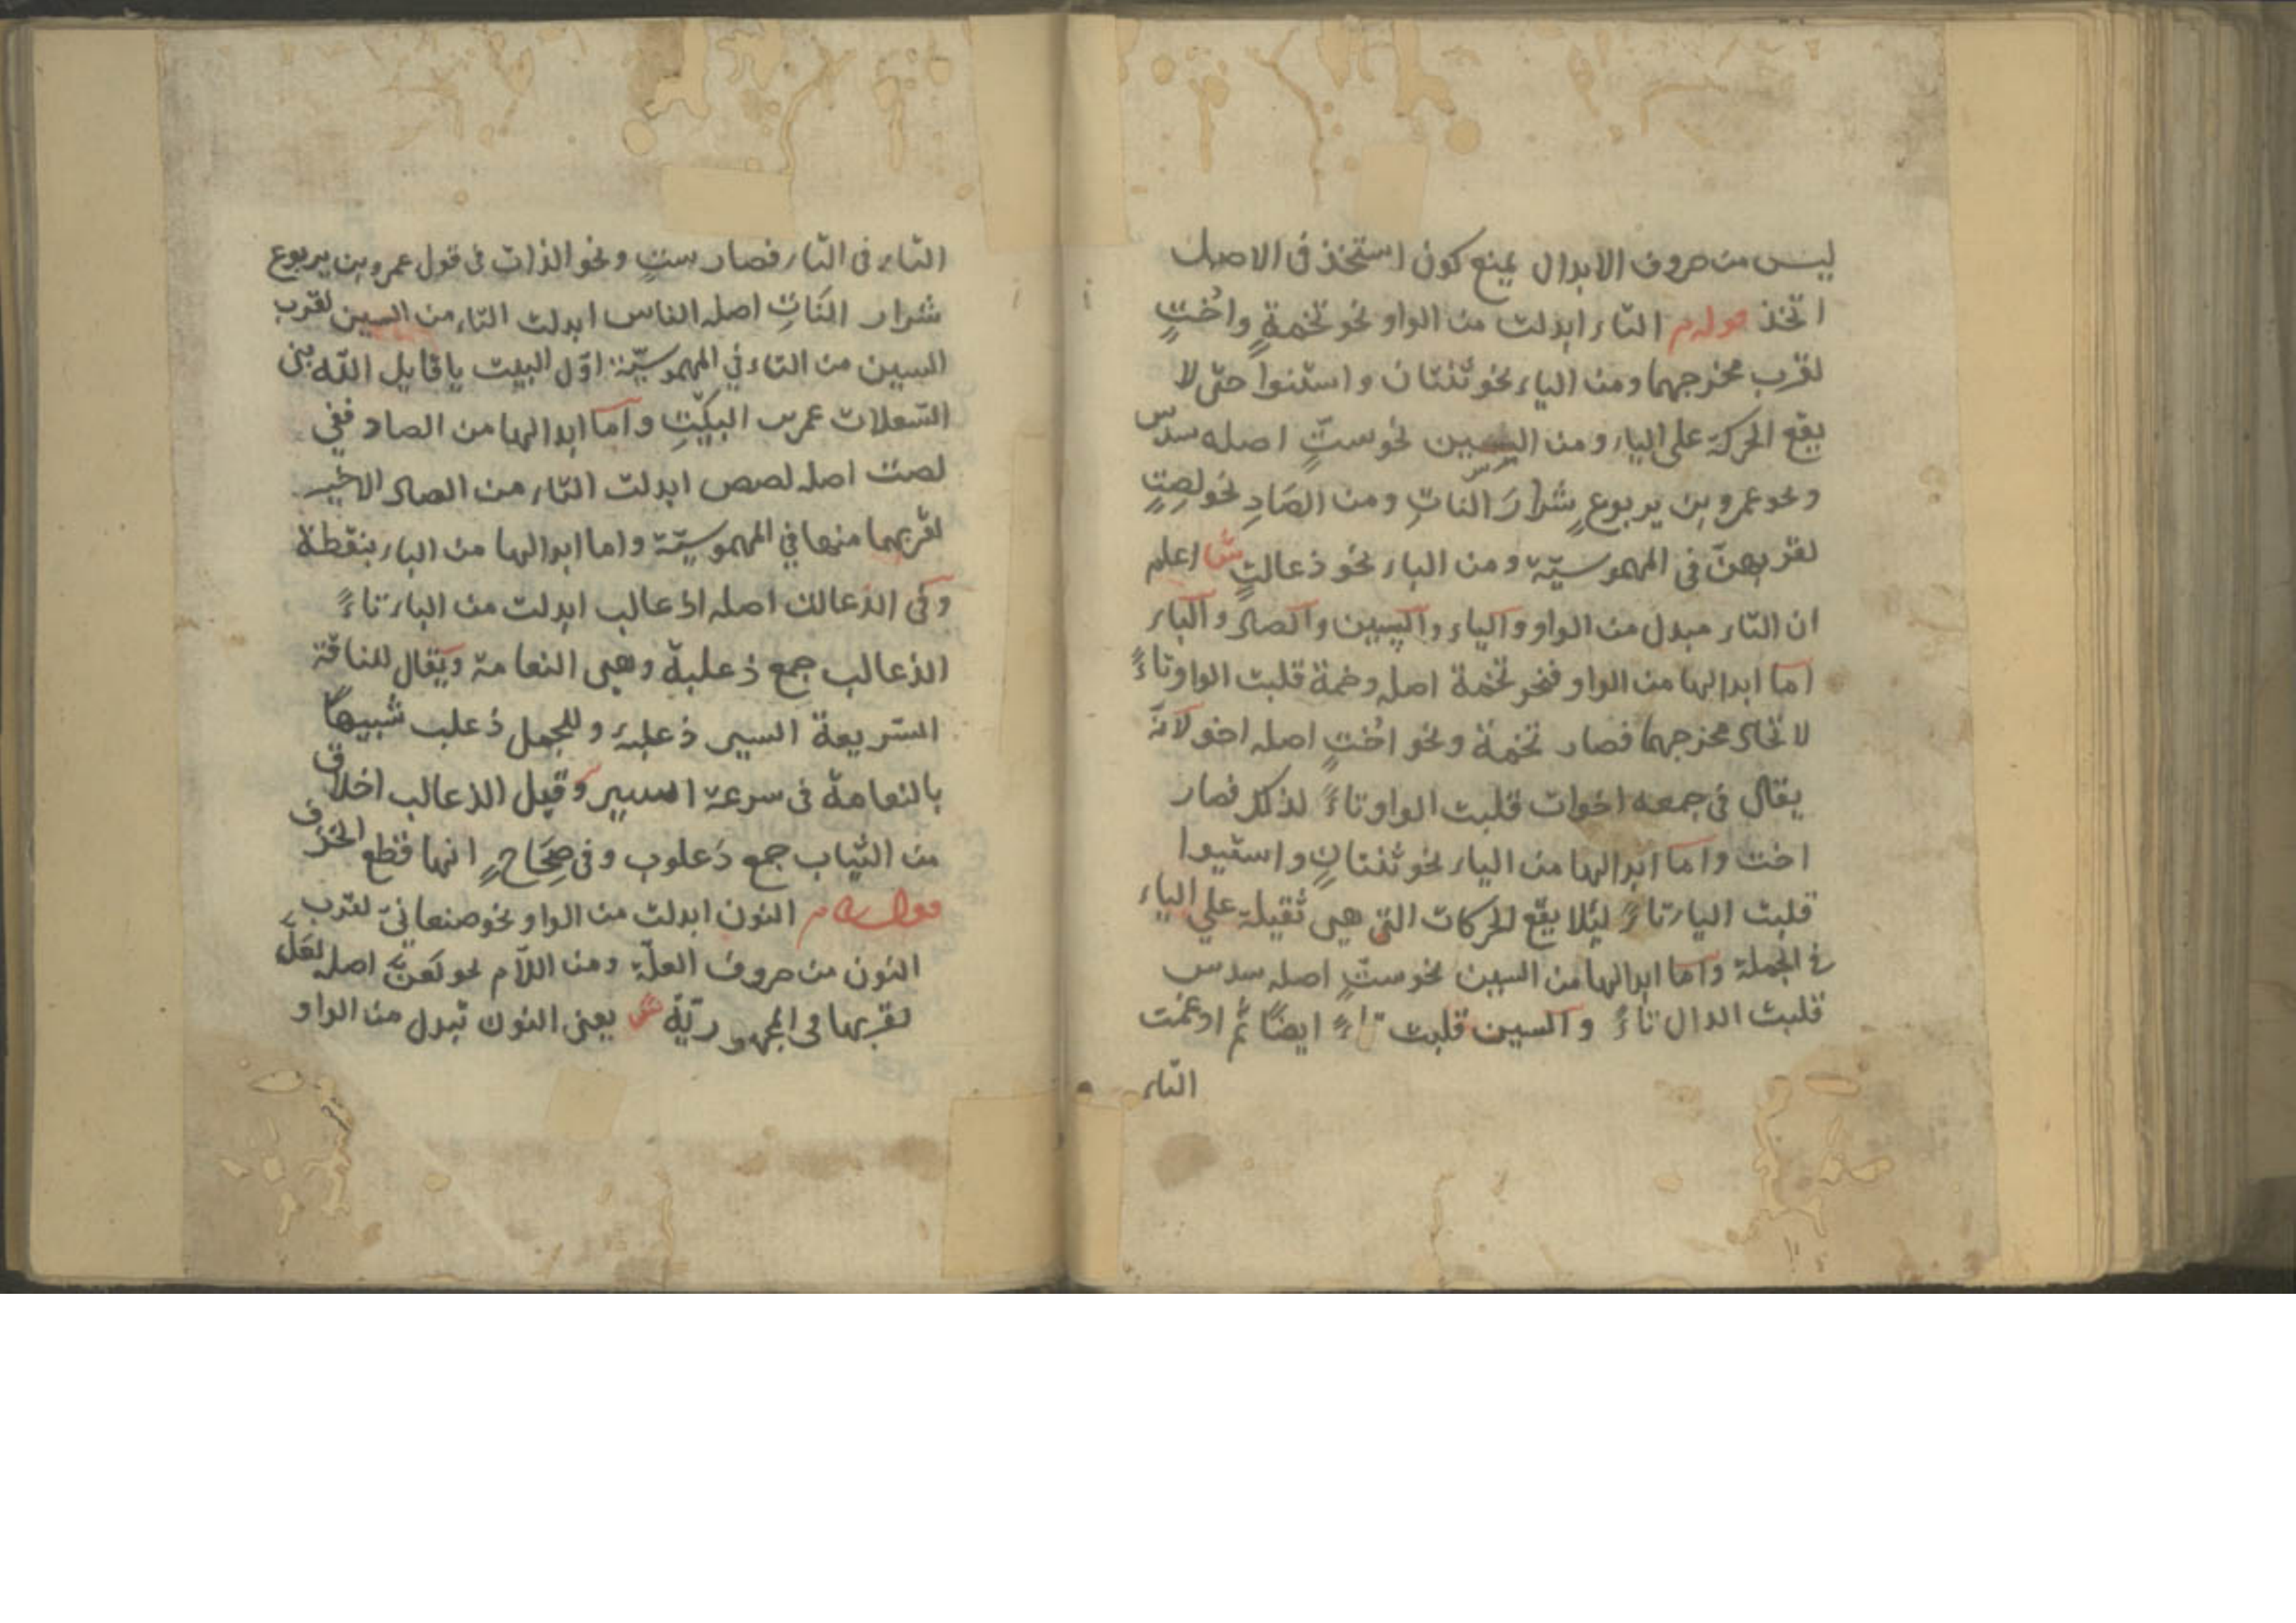 ليس من حروف الابدال يمنع كون استخذ فى الاصل
اتخذ قوله م التاء ابدلت من الواو نحو تخمةٍ واُختٍ
لقرب مخرجهما ومن الياء نحو ثنتان واستنوا حتى لا
يقع الحركة على الياء ومن السين نحو ستٍّ اصله سدس
ونحو عمرو بن يربوعٍ شرارَ الناتِ ومن الصَادِ نحو لصِتٍ
لقربهنّ فى المهموسيّة ومن الباء نحو ذعالتٍ ش اعلم
ان التاء مبدل من الواو والياء والسين والصاد والباء
اما ابدالها من الواو فنحو تخمة اصله وخمة قلبت الواو تاءً
لاتحاد مخرجهما فصار تخمة ونحو اُختٍ اصله اخو لانّه
يقال فى جمعه اخوات قلبت الواو تاءً لذلك فصار
اخت واما ابدالها من الياء نحو ثنتانِ واسنتوا
قلبت الياء تاءً لئلا يقع الحركات التى هى ثقيلة على الياء
فى الجملة واما ابدالها من السين نحو ستٍّ اصله سدس
قلبت الدال تاءً والسين قلبت تاءً ايضًا ثمّ ادغمت
التاء
التاء فى التاء فصار ستٍ ونحو الذات فى قول عمرو بن يربوع
شرار النَاتِ اصله الناس ابدلت التاء من السين لقرب
السين من التاء في المهموسيّة اوّل البيت يا قايل اللّه بنى
السّعلات عمرس البكّيتِ واما ابدالها من الصاد ففي
لصت اصله لصص ابدلت التاء من الصاد الاخير
لقربهما منها في المهموسيّة واما ابدالها من الباء بنقطة
وفى الذعالت اصله اذعالب ابدلت من الباء تاءً
الذعالب جمع ذعلبة وهى النعامة ويقال للناقة
السّريعة السير ذعلبة وللجمل ذعلب شبيهًا
بالنعامة فى سرعة السير وقيل الذعالب اخلاق
من الثياب جمع ذعلوب وفى صِحَاحٍ انها قطع الخرق
قوله م النون ابدلت من الواو نحو صنعانىّ لقرب
النون من حروف العلّة ومن اللاّم نحو لَعنّ اصله لعَلّ
لقربها فى المجهوريّة ش يعنى النون تبدل من الواو